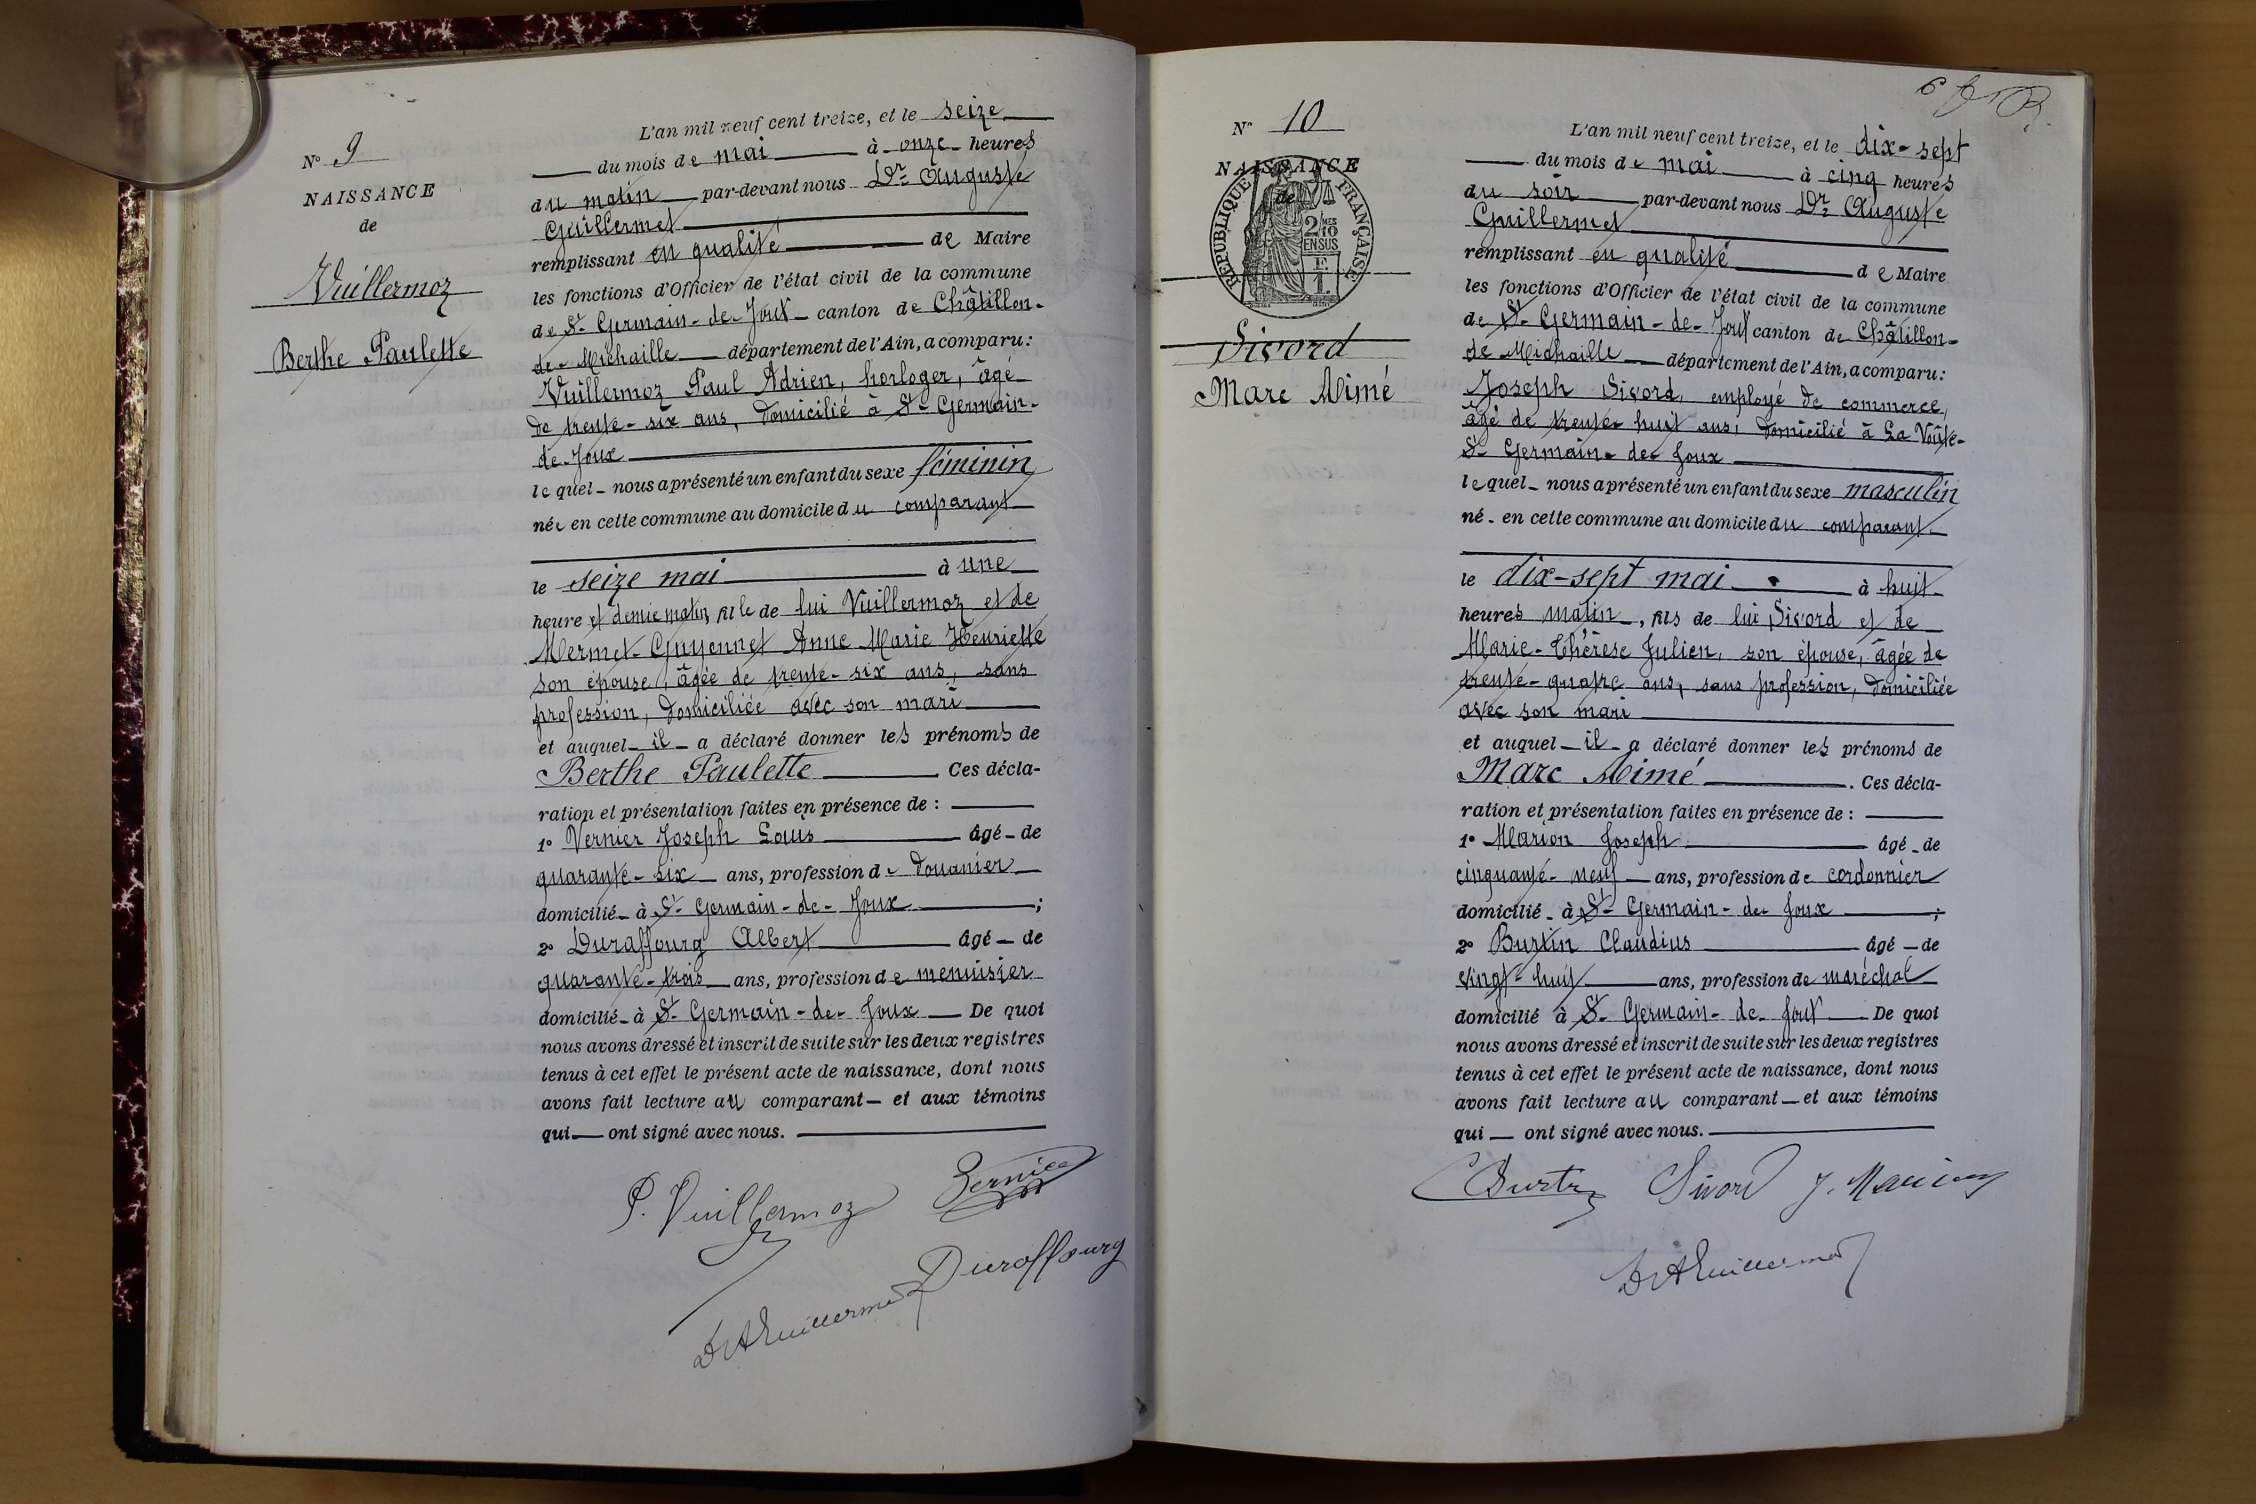 N° 9
NAISSANCE
de
Vuillermoz
Berthe Paulette
L'an mil neuf cent treize, et le seize
du mois de mai à onze heures
du matin par-devant nous Dr Auguste
Guillermet
remplissant en qualité de Maire
les fonctions d'Officier de l'état civil de la commune
de St Germain-de-Joux canton de Châtillon-
de-Michaille département de l'Ain, a comparu :
Vuillermoz Paul Adrien, horloger, âgé
de trente-six ans, domicilié à St Germain-
de-Joux
lequel nous a présenté un enfant du sexe féminin
née en cette commune au domicile du comparant
le seize mai à une
heure et demie matin, fille de lui Vuillermoz et de
Mermet-Guyennet Anne Marie Henriette
son épouse, âgée de trente-six ans, sans
profession, domiciliée avec son mari
et auquel il a déclaré donner les prénoms de
Berthe Paulette Ces décla-
ration et présentation faites en présence de :
1° Vernier Joseph Louis âgé de
quarante-six ans, profession de douanier
domicilié à St Germain-de-Joux ;
2° Duraffourg Albert âgé de
quarante-trois ans, profession de menuisier
domicilié à St Germain-de-Joux De quoi
nous avons dressé et inscrit de suite sur les deux registres
tenus à cet effet le présent acte de naissance, dont nous
avons fait lecture au comparant et aux témoins
qui ont signé avec nous.
P. Vuillermoz Vernier
Duraffourg
Dr A Guillermet
6
N° 10
NAISSANCE
de
RÉPUBLIQUE FRANÇAISE
2/10 MES
EN SUS
1 F.
Sivord
Marc Aimé
L'an mil neuf cent treize, et le dix-sept
du mois de mai à cinq heures
du soir par-devant nous Dr Auguste
Guillermet
remplissant en qualité de Maire
les fonctions d'Officier de l'état civil de la commune
de St Germain-de-Joux canton de Châtillon-
de Michaille département de l'Ain, a comparu :
Joseph Sivord, employé de commerce,
âgé de trente-huit ans, domicilié à La Voûte-
St Germain-de-Joux
lequel nous a présenté un enfant du sexe masculin
né en cette commune au domicile du comparant
le dix-sept mai à huit
heures matin, fils de lui Sivord et de
Marie-Thérèse Julien, son épouse, âgée de
trente-quatre ans, sans profession, domiciliée
avec son mari
et auquel il a déclaré donner les prénoms de
Marc Aimé . Ces décla-
ration et présentation faites en présence de :
1° Marion Joseph âgé de
cinquante-neuf ans, profession de cordonnier
domicilié à St Germain-de-Joux ;
2° Burtin Claudius âgé de
vingt-huit ans, profession de maréchal
domicilié à St Germain-de-Joux De quoi
nous avons dressé et inscrit de suite sur les deux registres
tenus à cet effet le présent acte de naissance, dont nous
avons fait lecture au comparant et aux témoins
qui ont signé avec nous.
Burtin Sivord J. Marion
Dr A Guillermet